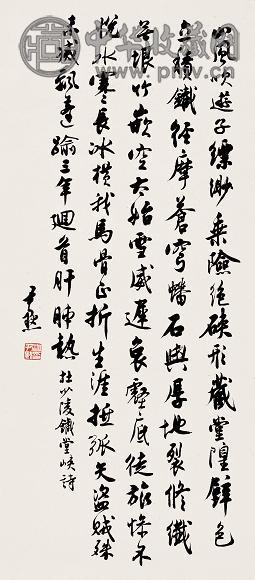 山風吹遊子縹緲乘險絕硤形藏堂隍壁色
立積鐵徑摩蒼穹蟠石與厚地裂修纖
無垠竹嵌空太始雪威遲哀壑底徒旅慘不
悅水寒長冰橫我馬骨正折生涯抵弧矢盜賊殊
未滅飄蓬踰三年迴首肝肺熱 杜少陵鐵堂峽詩
尹默
中华收藏网